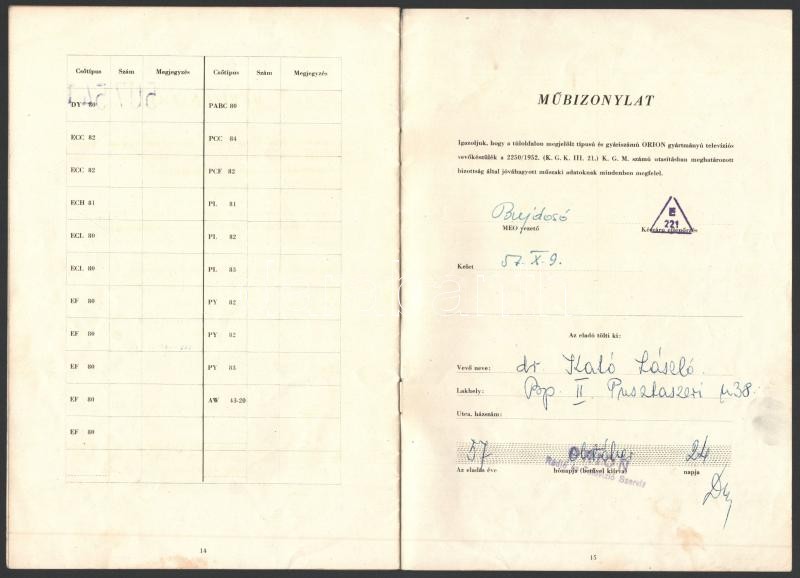 Csőtípus Szám Megjegyzés Csőtípus Szám Megjegyzés
DY 80 PABC 80
ECC 82 PCC 84
ECC 82 PCF 82
ECH 81 PL 81
ECL 80 PL 82
ECL 80 PL 83
EF 80 PY 82
EF 80 PY 82
EF 80 PY 83
EF 80 AW 43-20
EF 80
14
MŰBIZONYLAT
Igazoljuk, hogy a túloldalon megjelölt típusú és gyáriszámú ORION gyártmányú televíziós
vevőkészülék a 2250/1952. (K. G. K. III. 21.) K. G. M. számú utasításban meghatározott
bizottság által jóváhagyott műszaki adatoknak mindenben megfelel.
Bujdosó
E
221
MEO vezető Készáru ellenőrzés
Kelet 57. X. 9.
Az eladó tölti ki:
Vevő neve: dr Kató László.
Lakhely: Bp. II Pusztaszeri u 38.
Utca, házszám:
57 október 24
ORION
Az eladás éve hónapja (betűvel kiírva) napja
Rádió és Televízió Szerviz
15